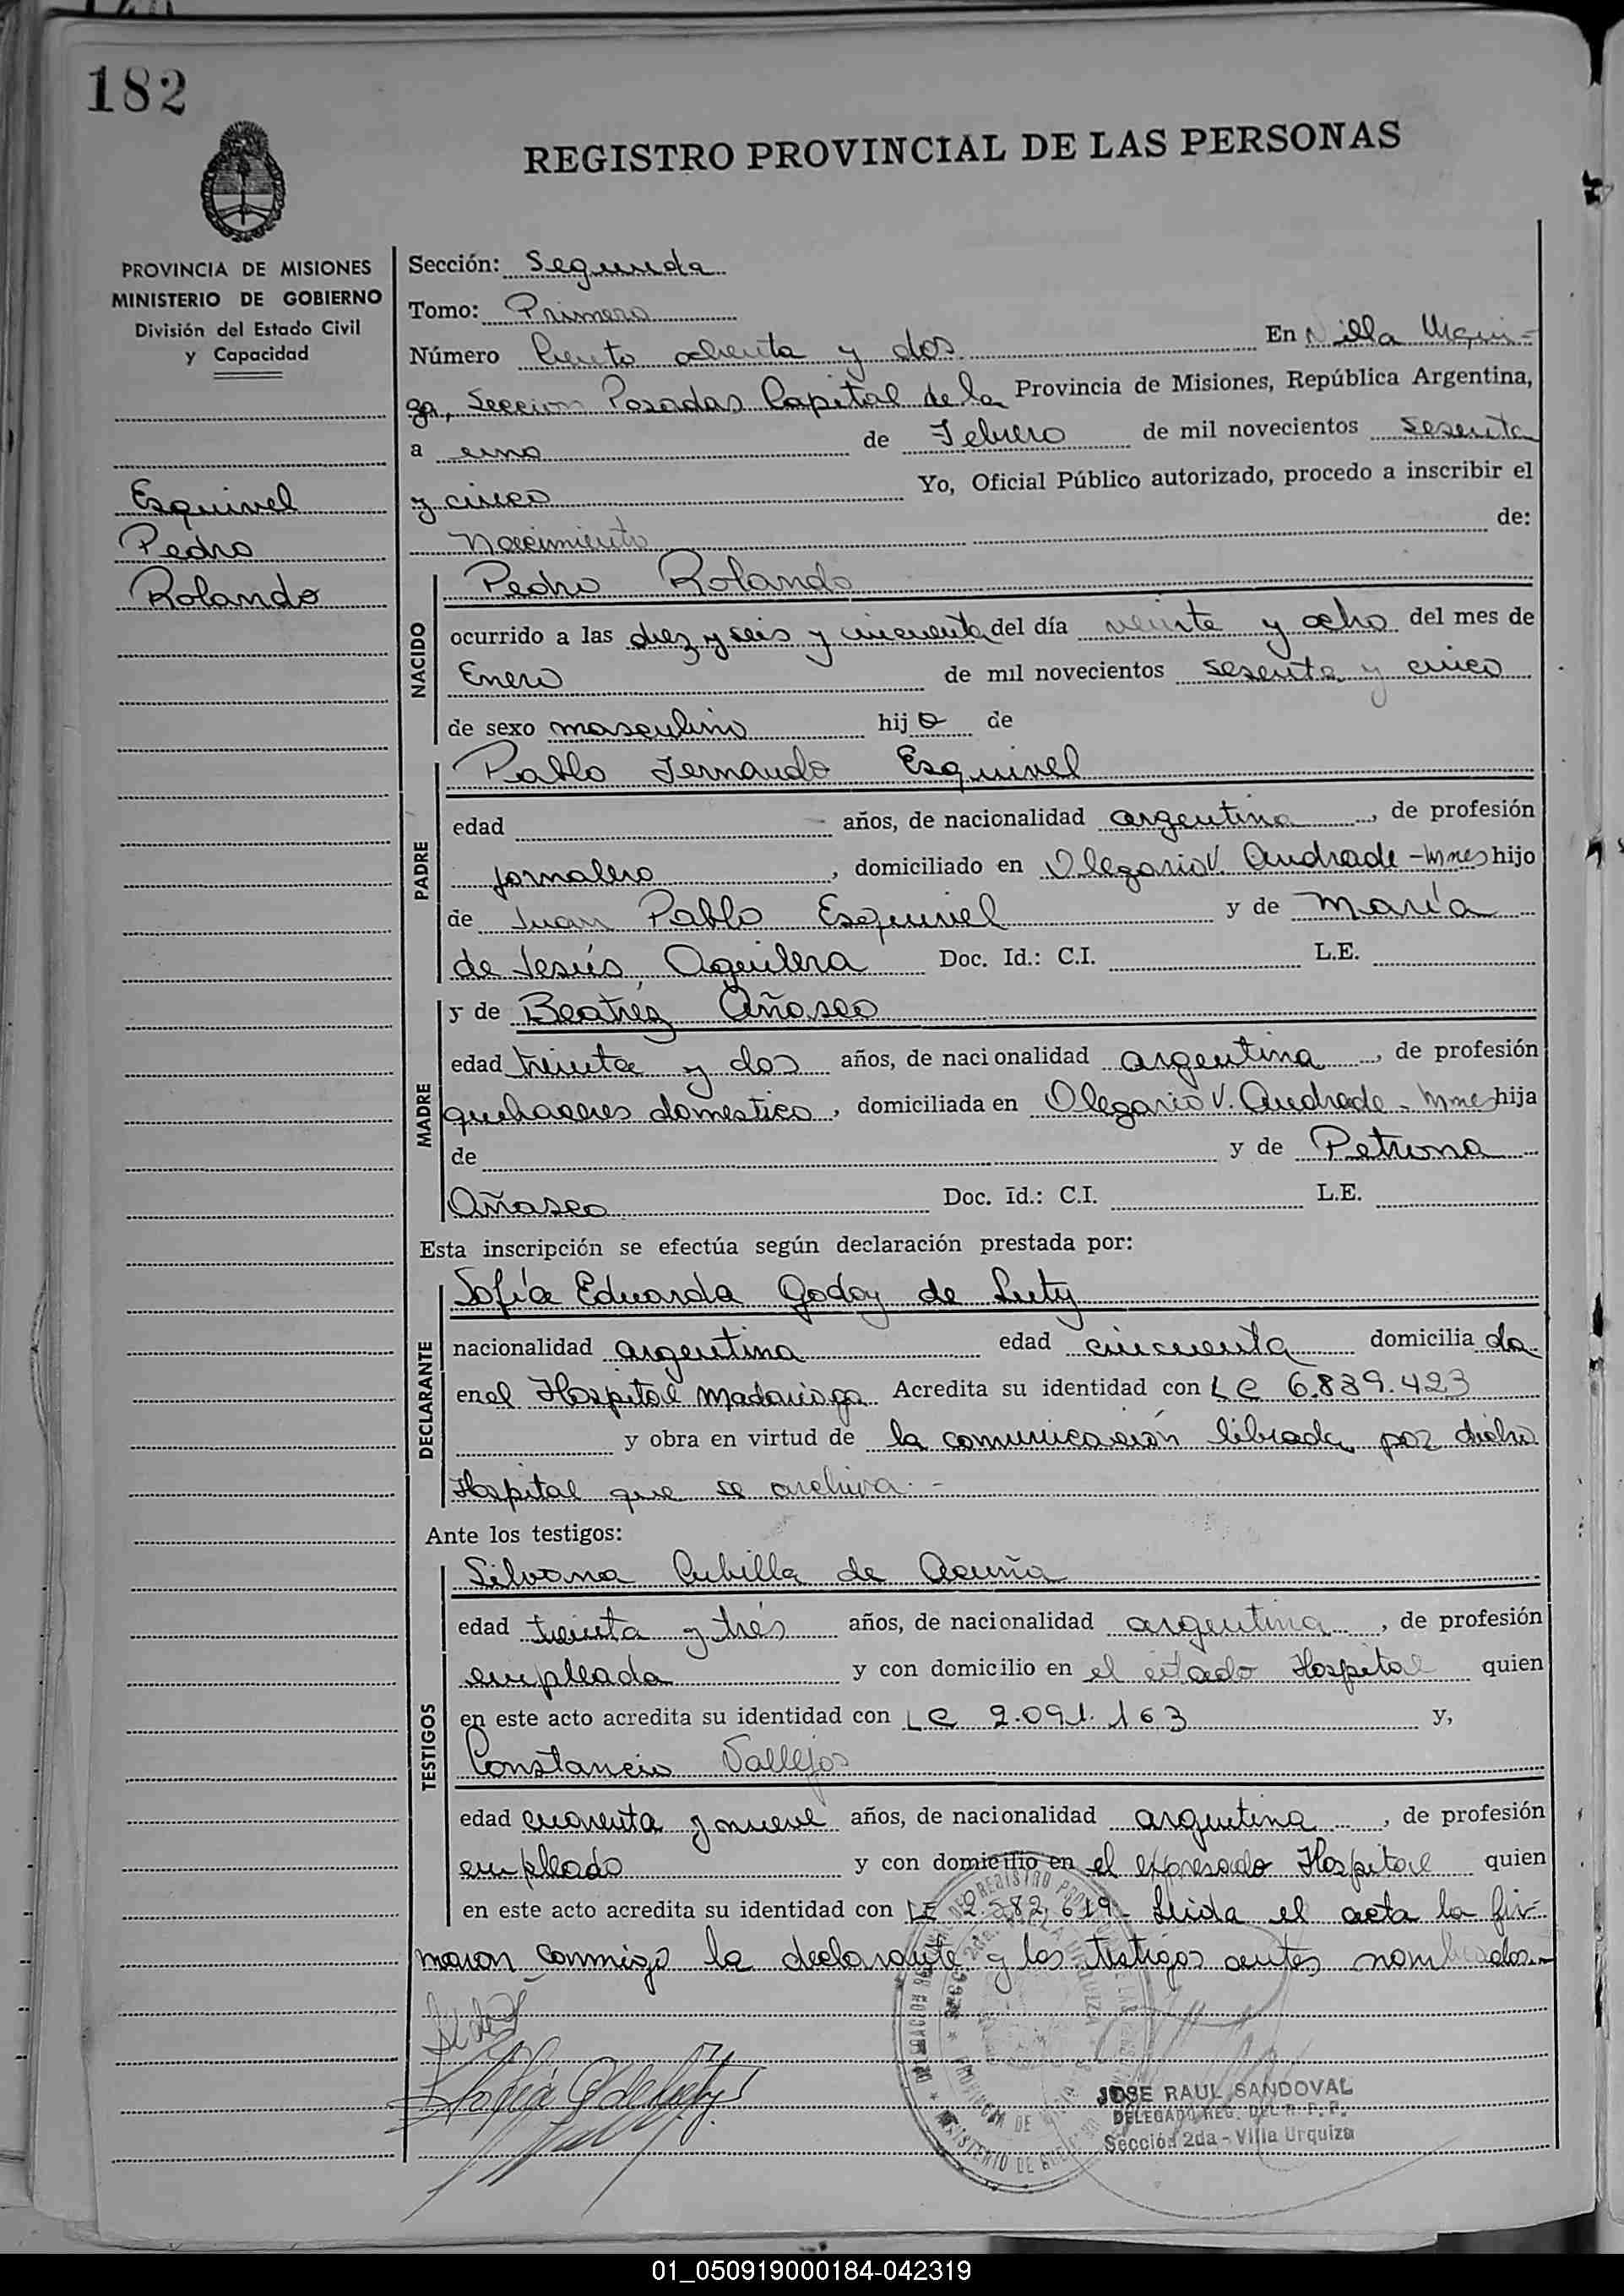 182
REGISTRO PROVINCIAL DE LAS PERSONAS
PROVINCIA DE MISIONES
MINISTERIO DE GOBIERNO
División del Estado Civil
y Capacidad
Esquivel
Pedro
Rolando
Sección: Segunda
Tomo: Primero
Número Ciento ochenta y dos En Villa Urqui-
za, Seccion Posadas Capital de la Provincia de Misiones, República Argentina,
a uno de Febrero de mil novecientos sesenta
y cinco Yo, Oficial Público autorizado, procedo a inscribir el
Nacimiento de:
NACIDO
Pedro Rolando
ocurrido a las diez y seis y cincuenta del día veinte y ocho del mes de
Enero de mil novecientos sesenta y cinco
de sexo masculino hijo de
PADRE
Pablo Fernando Esquivel
edad años, de nacionalidad argentina, de profesión
jornalero, domiciliado en Olegario V. Andrade - Mnes hijo
de Juan Pablo Esquivel y de María
de Jesús Aguilera Doc. Id.: C.I. L.E.
MADRE
y de Beatréz Añasco
edad treinta y dos años, de nacionalidad argentina, de profesión
quehaceres domestico, domiciliada en Olegario V. Andrade - Mnes hija
de y de Petrona
Añasco Doc. Id.: C.I. L.E.
Esta inscripción se efectúa según declaración prestada por:
DECLARANTE
Sofía Eduarda Godoy de Luty
nacionalidad argentina edad cincuenta domiciliada
en el Hospital Madariaga Acredita su identidad con LC 6.839.423
y obra en virtud de la comunicación librada por dicho
Hospital que se archiva.-
Ante los testigos:
TESTIGOS
Silvana Cubilla de Acuña
edad treinta y trés años, de nacionalidad argentina, de profesión
empleada y con domicilio en el citado Hospital quien
en este acto acredita su identidad con LC 2.091.163 y,
Constancio Vallejos
edad cuarenta y nueve años, de nacionalidad argentina, de profesión
empleado y con domicilio en el expresado Hospital quien
en este acto acredita su identidad con LE 2.582.619- Leida el acta la fir-
maron conmigo la declarante y los testigos antes nombrados.-
JOSE RAUL SANDOVAL
DELEGADO REG. DEL R. P. P.
Sección 2da - Villa Urquiza
01_050919000184-042319